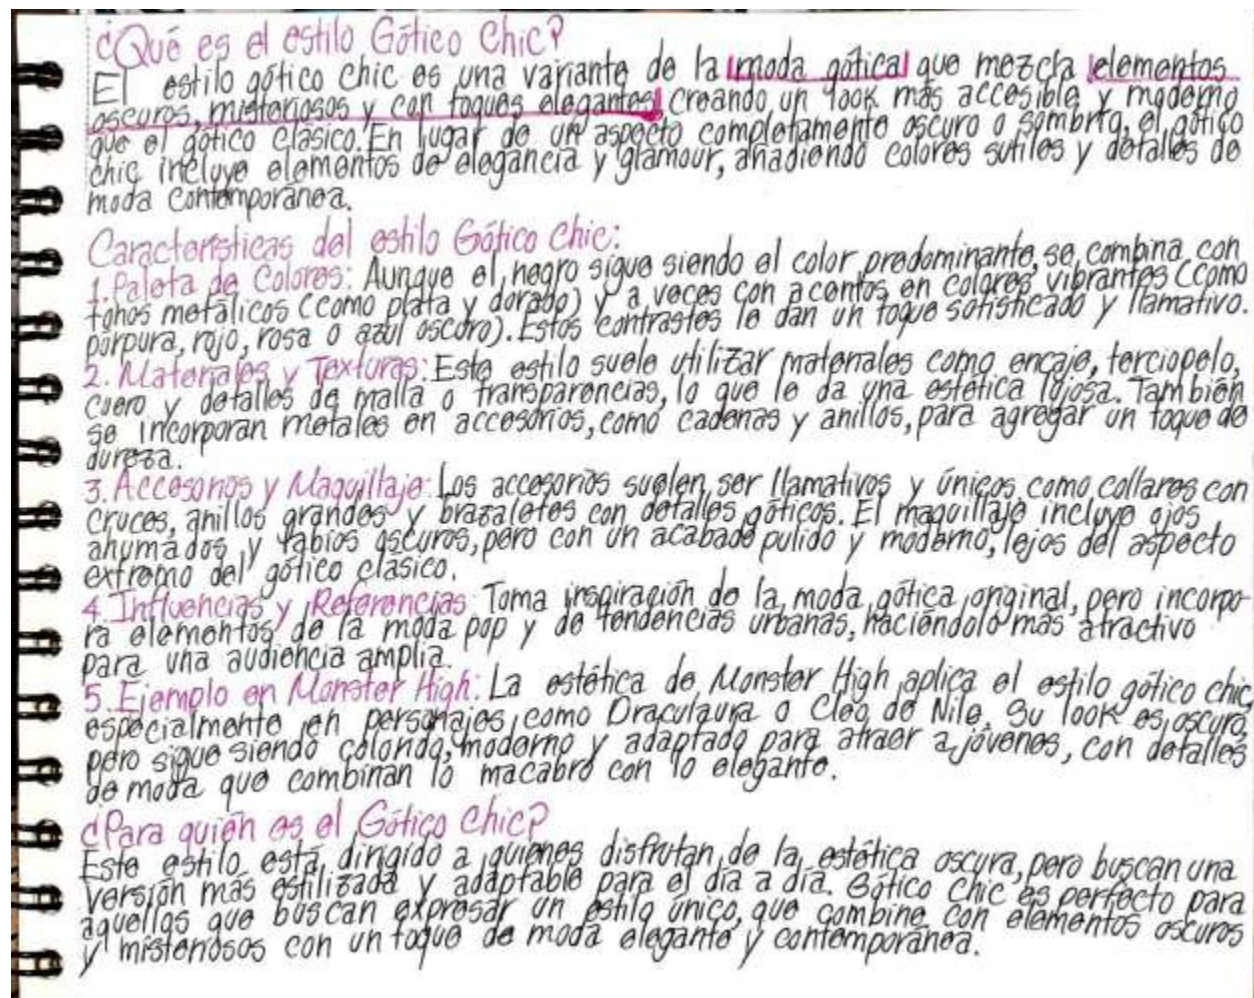 ¿Qué es el estilo Gótico Chic?
El estilo gótico chic es una variante de la moda gótica que mezcla elementos
oscuros, misteriosos y con toques elegantes, creando un look más accesible y moderno
que el gótico clásico. En lugar de un aspecto completamente oscuro o sombrío, el gótico
chic incluye elementos de elegancia y glamour, añadiendo colores sutiles y detalles de
moda contemporánea.
Características del estilo Gótico Chic:
1. Paleta de Colores: Aunque el negro sigue siendo el color predominante, se combina con
tonos metálicos (como plata y dorado) y a veces con acentos en colores vibrantes (como
púrpura, rojo, rosa o azul oscuro). Estos contrastes le dan un toque sofisticado y llamativo.
2. Materiales y Texturas: Este estilo suele utilizar materiales como encaje, terciopelo,
cuero y detalles de malla o transparencias, lo que le da una estética lujosa. También
se incorporan metales en accesorios, como cadenas y anillos, para agregar un toque de
dureza.
3. Accesorios y Maquillaje: Los accesorios suelen ser llamativos y únicos, como collares con
cruces, anillos grandes y brazaletes con detalles góticos. El maquillaje incluye ojos
ahumados y labios oscuros, pero con un acabado pulido y moderno, lejos del aspecto
extremo del gótico clásico.
4. Influencias y Referencias: Toma inspiración de la moda gótica original, pero incorpo-
ra elementos de la moda pop y de tendencias urbanas, haciéndolo más atractivo
para una audiencia amplia.
5. Ejemplo en Monster High: La estética de Monster High aplica el estilo gótico chic,
especialmente en personajes como Draculaura o Cleo de Nile. Su look es oscuro,
pero sigue siendo colorido, moderno y adaptado para atraer a jóvenes, con detalles
de moda que combinan lo macabro con lo elegante.
¿Para quién es el Gótico Chic?
Este estilo está dirigido a quienes disfrutan de la estética oscura, pero buscan una
versión más estilizada y adaptable para el día a día. Gótico Chic es perfecto para
aquellos que buscan expresar un estilo único, que combine con elementos oscuros
y misteriosos con un toque de moda elegante y contemporánea.